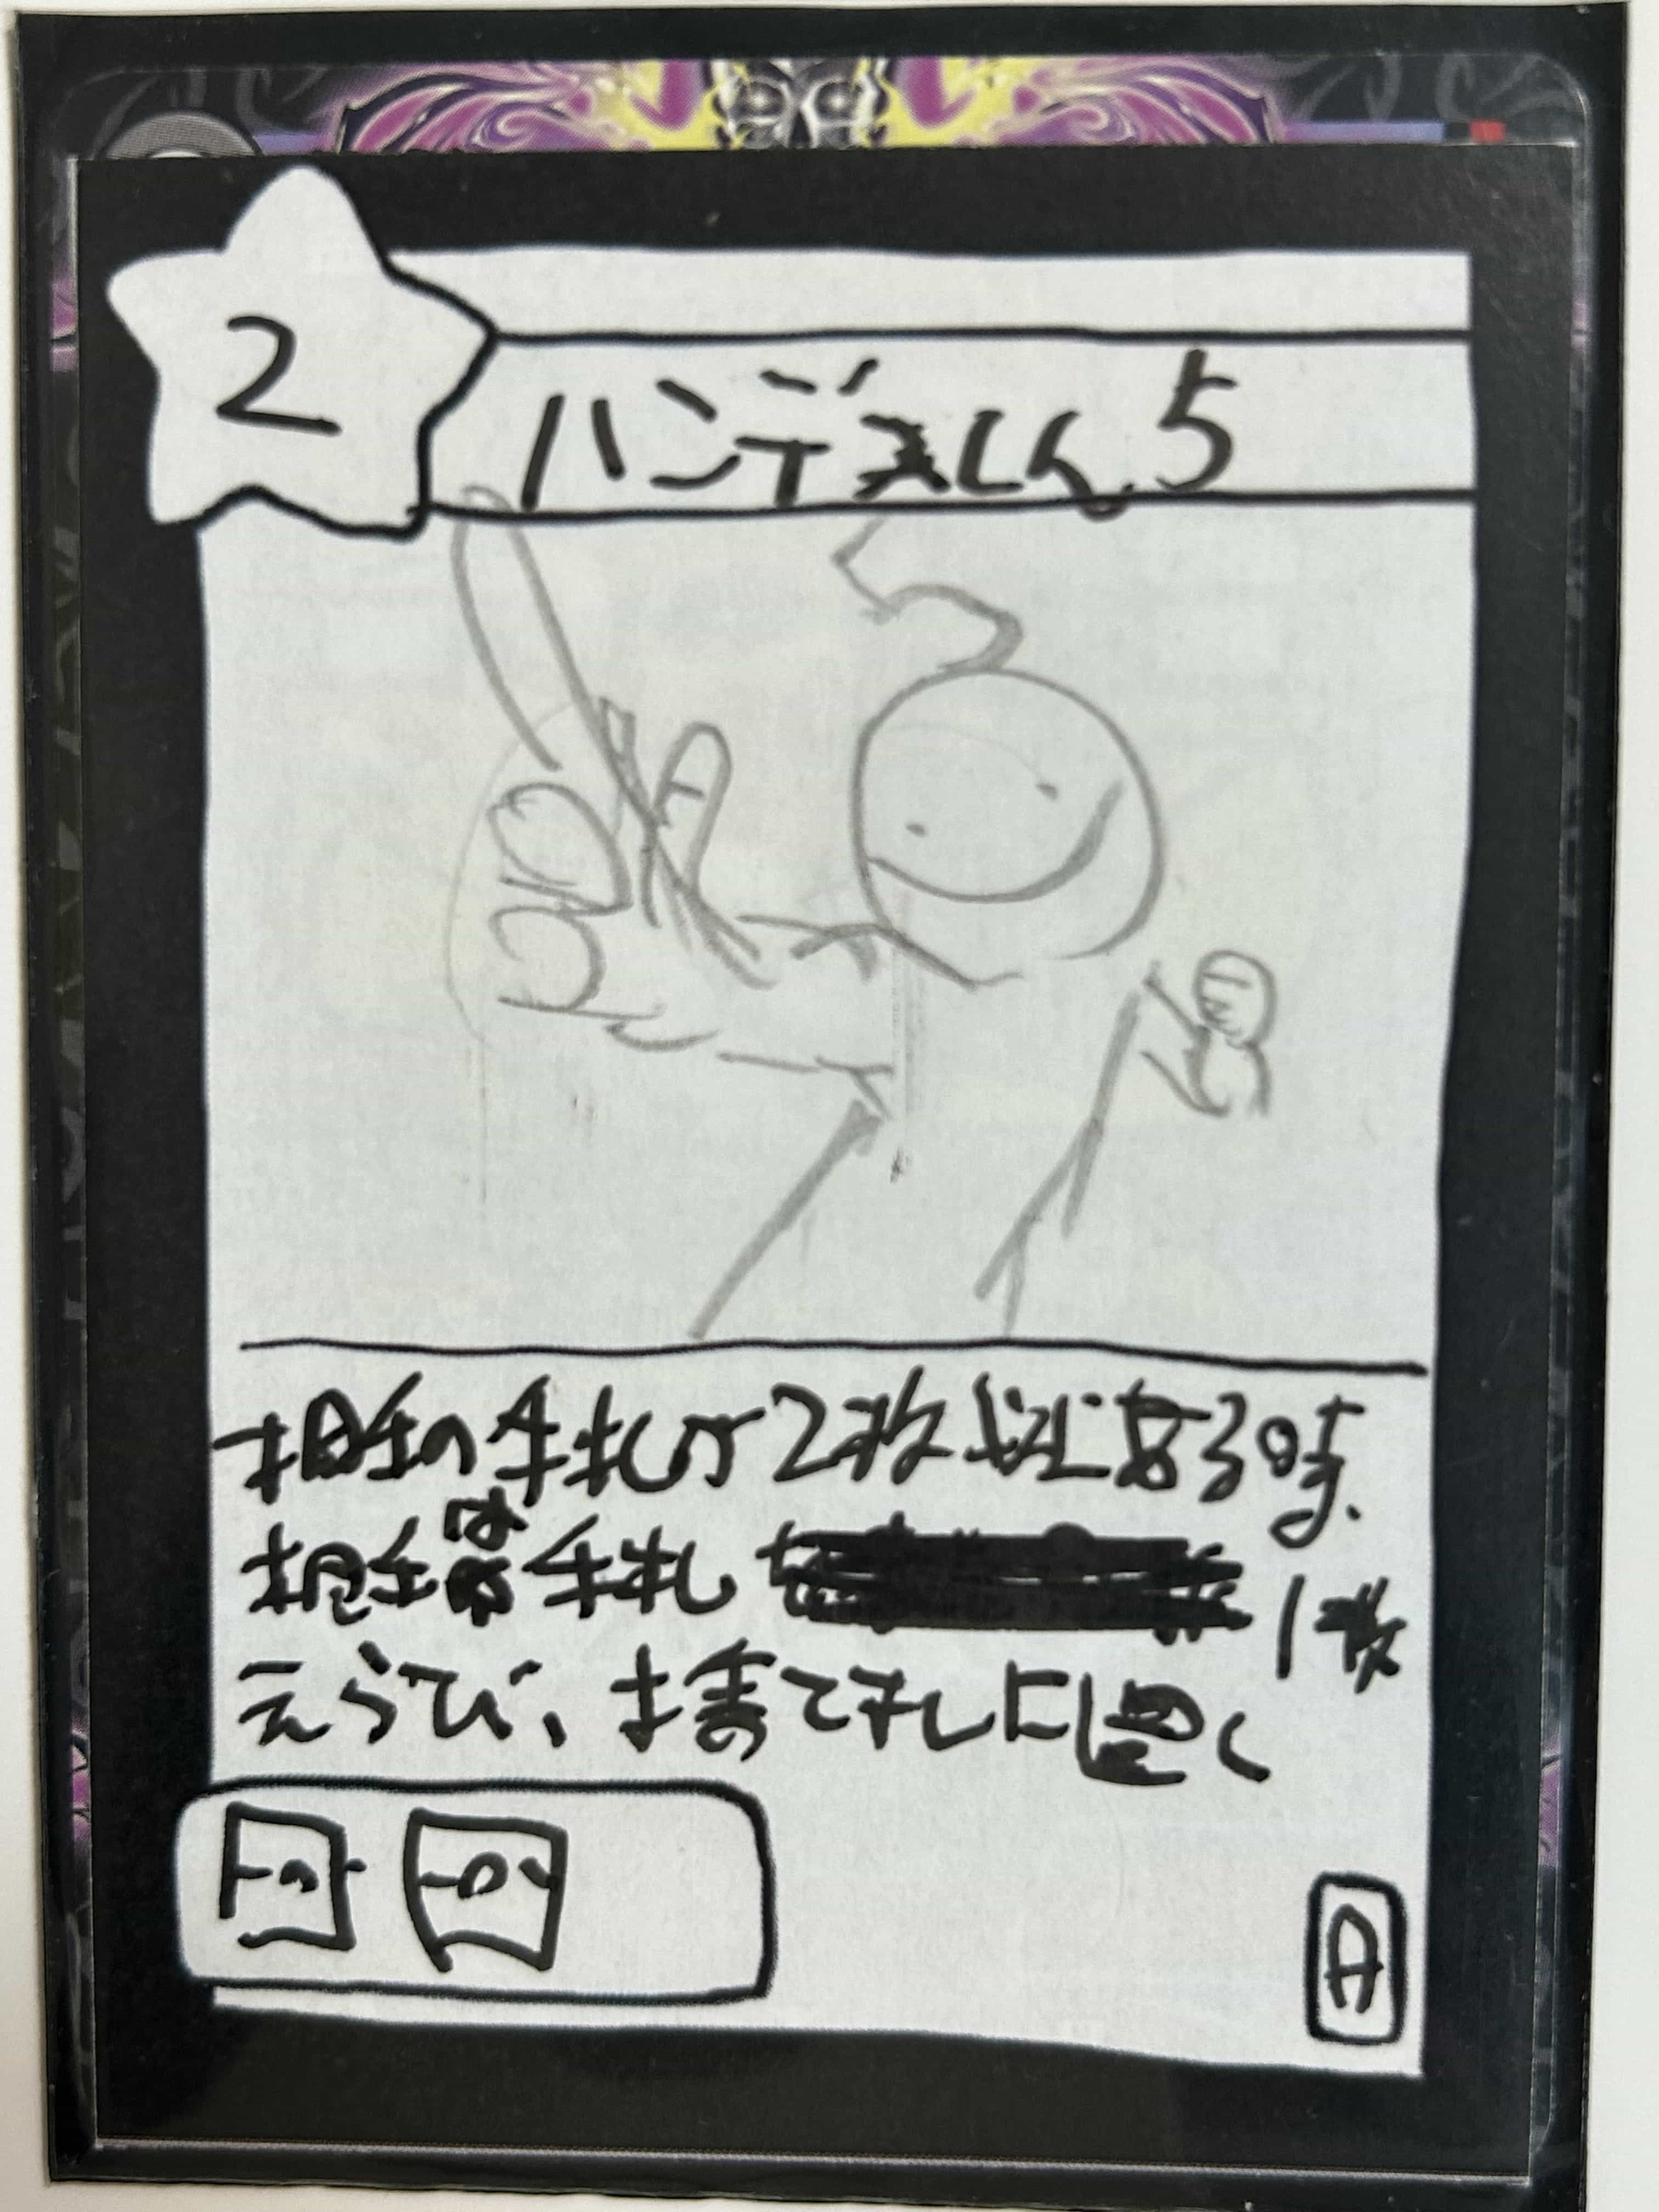 2
ハンデスくん5
相手の手札が2枚以上ある時、
相手は手札を1枚
えらび、捨て札に置く
A